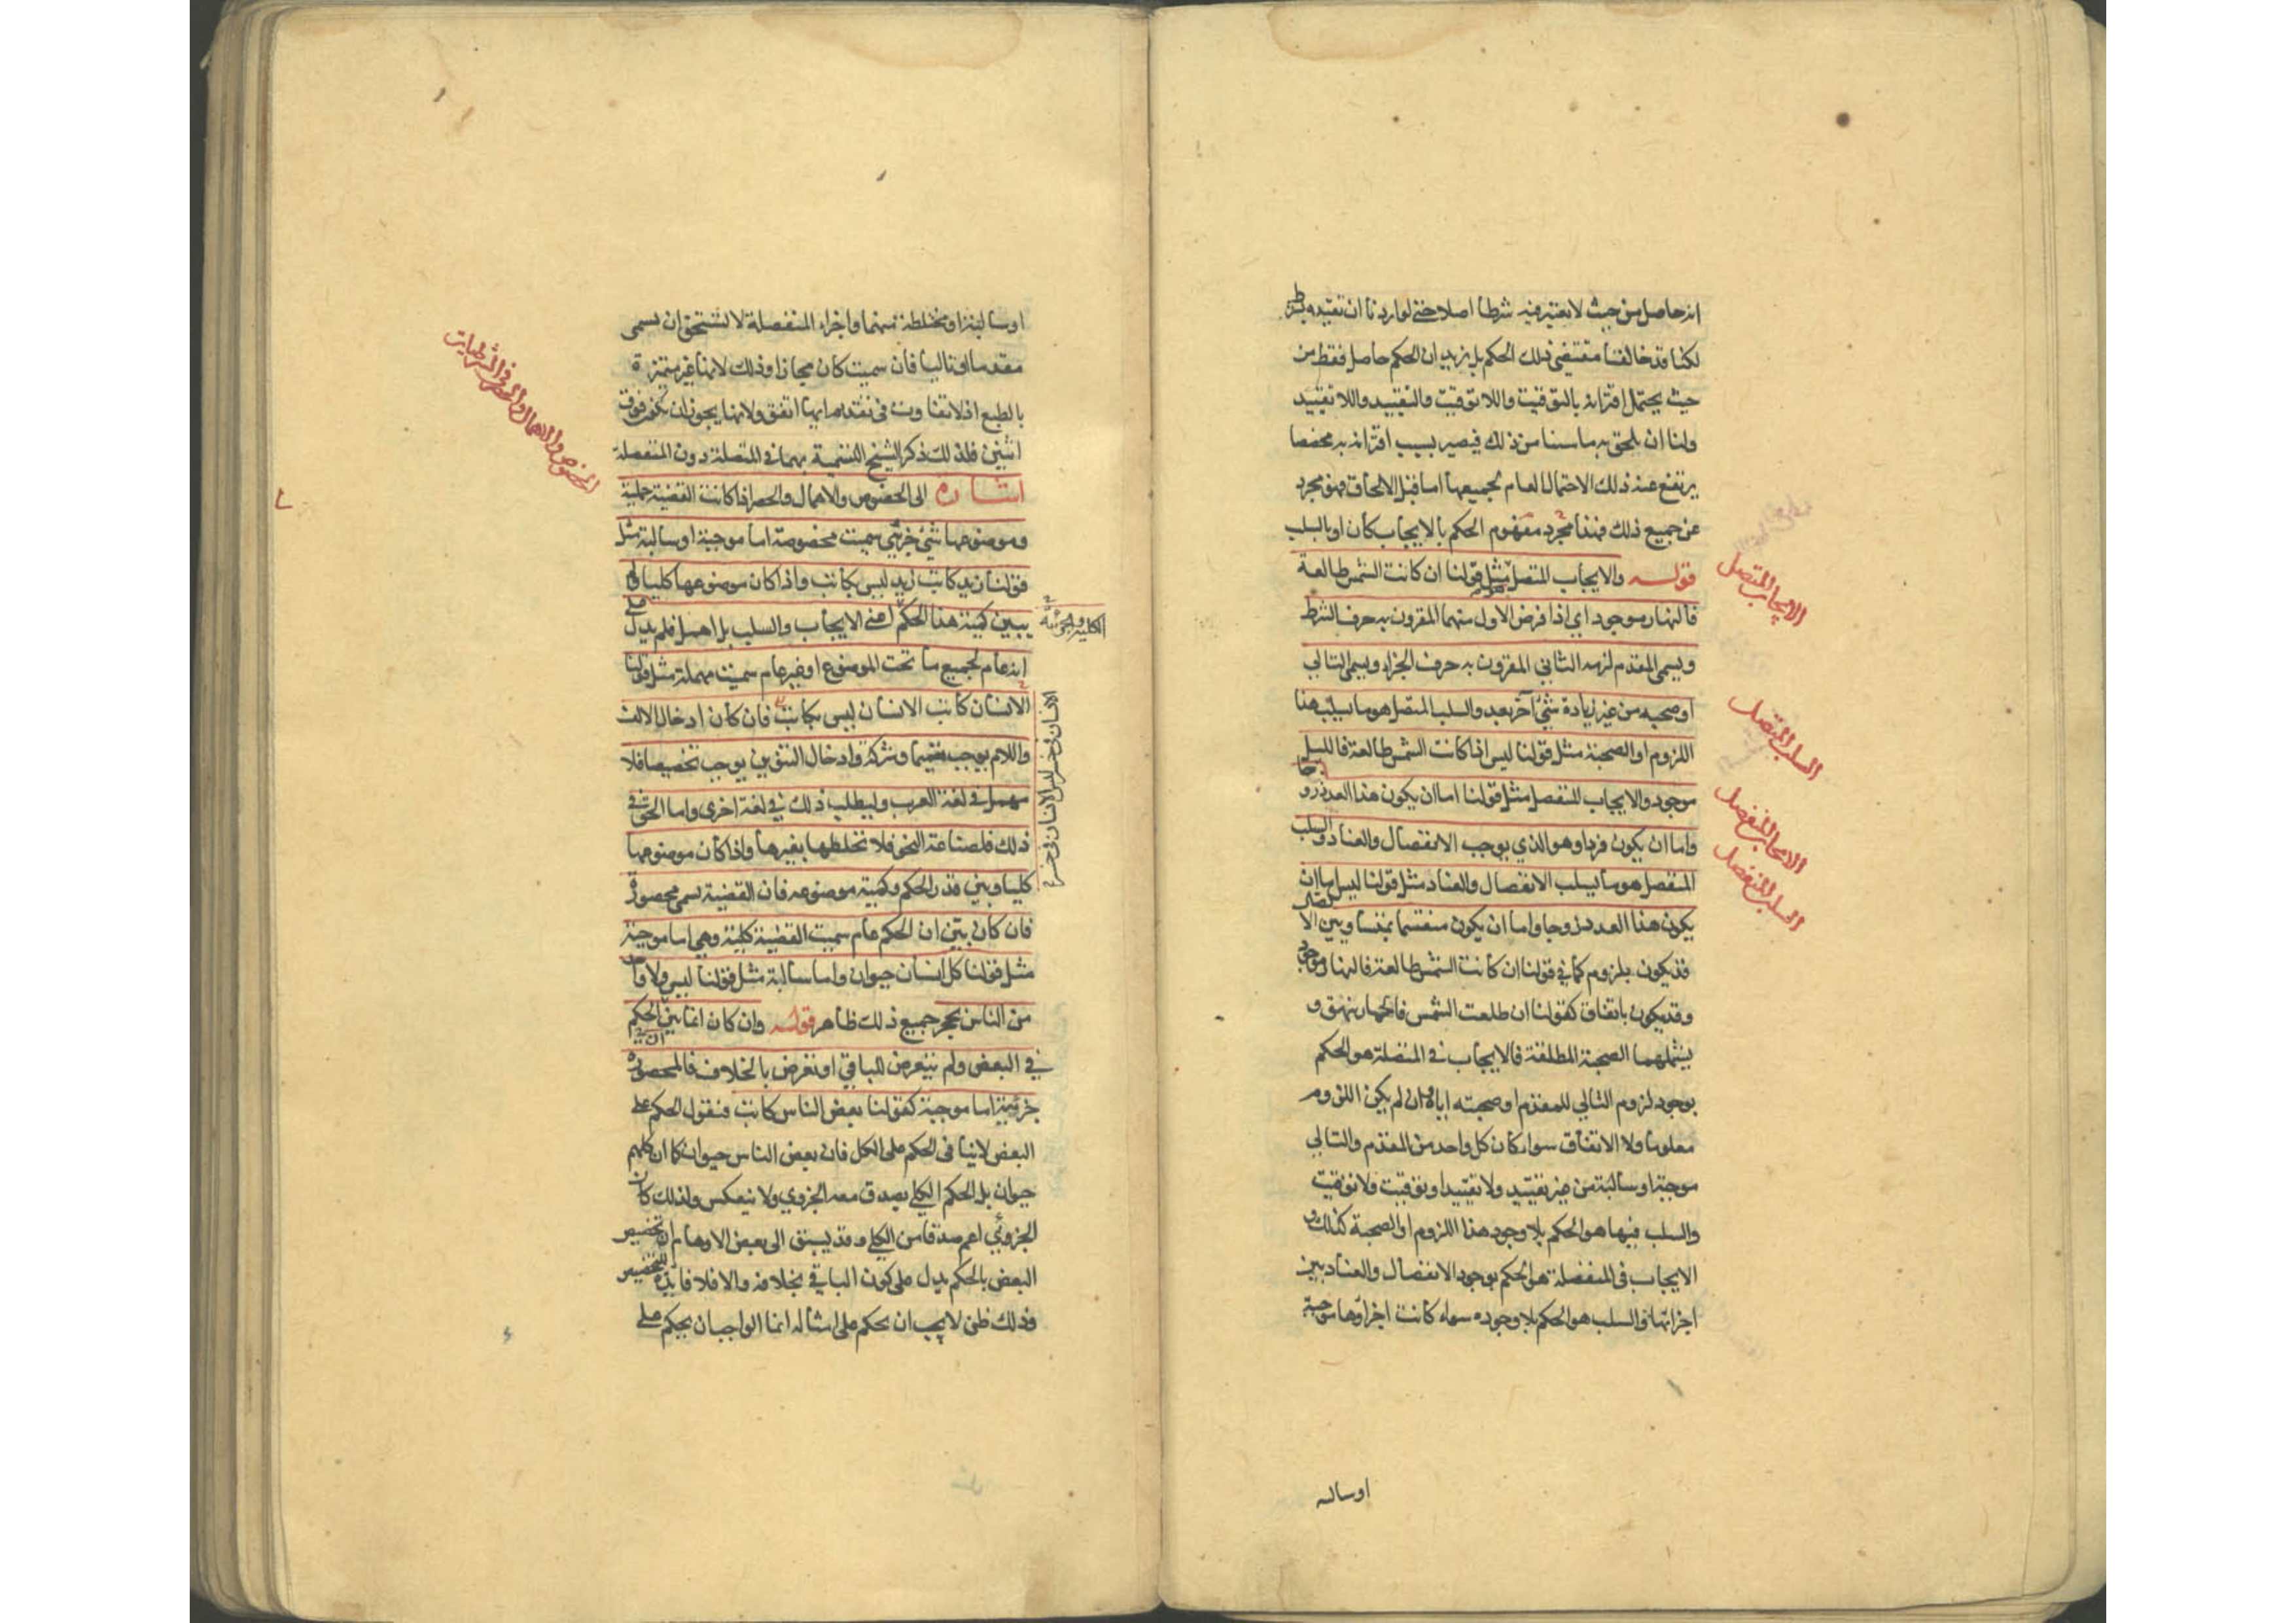 انه حاصل من حيث لا نعتبر فيه شرطا اصلا حتى لو اردنا ان نقيده بشرط
لكنا قد خالفنا مقتضى ذلك الحكم بل نريد ان الحكم حاصل فقط من
حيث يحتمل اقترانه بالتوقيت واللاتوقيت والتقييد واللاتقييد
ولنا ان نلحق به ما سنا من ذلك فيصير بسبب اقترانه به مخصصا
يرتفع عنه ذلك الاحتمال العام لجميعها اما قبل الالحاق فهو مجرد
عن جميع ذلك فهذا مجرد مفهوم الحكم بالايجاب كان او بالسلب
قوله والايجاب المتصل مثل قولنا ان كانت الشمس طالعة
فالنهار موجود اي اذا فرض الاول منهما المقرون به حرف الشرط
ويسمى المقدم لزمه الثاني المقرون به حرف الجزاء ويسمى التالي
او صحبه من غير زيادة شيء آخر بعد والسلب المتصل هو ما يسلب هذا
اللزوم او الصحبة مثل قولنا ليس اذا كانت الشمس طالعة فالليل
موجود والايجاب المنفصل مثل قولنا اما ان يكون هذا العدد زوجا
واما ان يكون فردا وهو الذي يوجب الانفصال والعناد والسلب
المنفصل هو ما يسلب الانفصال والعناد مثل قولنا ليس اما ان
يكون هذا العدد زوجا واما ان يكون منقسما بمتساويين الا
قد يكون بلزوم كما في قولنا ان كانت الشمس طالعة فالنهار موجود
وقد يكون باتفاق كقولنا ان طلعت الشمس فالحمار ينهق و
يشملهما الصحبة المطلقة فالايجاب في المتصلة هو الحكم
بوجود لزوم التالي للمقدم او صحبته اياه ان لم يكن اللزوم
معلوما ولا الاتفاق سواء كان كل واحد من المقدم والتالي
موجبة او سالبة من غير تقييد ولا تقييد او توقيت ولا توقيت
والسلب فيها هو الحكم بلا وجود هذا اللزوم او الصحبة كذلك و
الايجاب في المنفصلة هو الحكم بوجود الانفصال والعناد بين
اجزائها والسلب هو الحكم بلا وجوده سواء كانت اجزاؤها موجبة
اوساله
الايجاب المتصل
السلب المتصل
الايجاب المنفصل
السلب المنفصل
او سالبة او مختلطة منهما واجزاء المنفصلة لا تستحق ان يسمى
مقدما او تاليا فان سميت كان مجازا وذلك لانها غير متميزة
بالطبع اذ لا تفاوت في تقديم ايها اتفق ولانها يجوز ان تكون فوق
اثنين فلذلك ذكر الشيخ التسمية بهما في المتصلة دون المنفصلة
اشارة الى الخصوص والاهمال والحصر اذا كانت القضية حملية
وموضوعها شيء جزئي سميت مخصوصة اما موجبة او سالبة مثل
قولنا زيد كاتب زيد ليس بكاتب واذا كان موضوعها كليا ولم
يبين كمية هذا الحكم اعني الايجاب والسلب بل اهمل فلم يدل على
انه عام لجميع ما تحت الموضوع او غير عام سميت مهملة مثل قولنا
الانسان كاتب الانسان ليس بكاتب فان كان ادخال الالف
واللام يوجب تعميما وشركة وادخال التنوين يوجب تخصيصا فلا
مهمل في لغة العرب وليطلب ذلك في لغة اخرى واما الحق في
ذلك فلصناعة النحو فلا تخلطها بغيرها واذا كان موضوعها
كليا وبين قدر الحكم وكمية موضوعه فان القضية تسمى محصورة
فان كان بين ان الحكم عام سميت القضية كلية وهي اما موجبة
مثل قولنا كل انسان حيوان واما سالبة مثل قولنا ليس ولا واحد
من الناس بحجر جميع ذلك ظاهر قوله وان كان انما بين ان الحكم
في البعض ولم يتعرض للباقي او تعرض بالخلاف فالمحصورة
جزئية اما موجبة كقولنا بعض الناس كاتب فنقول الحكم على
البعض لا ينافي الحكم على الكل فان بعض الناس حيوان كما ان كلهم
حيوان بل الحكم الكلي يصدق معه الجزوي ولا ينعكس ولذلك كان
الجزوي اعم صدقا من الكلي وقد يسبق الى بعض الاوهام ان تخصيص
البعض بالحكم يدل على كون الباقي بخلافه والا فلا فايدة للتخصيص
وذلك ظن لا يجب ان يحكم على امثاله انما الواجب ان يحكم على
الخصوص والاهمال والحصر في الشرطيات
الكلية والجزئية